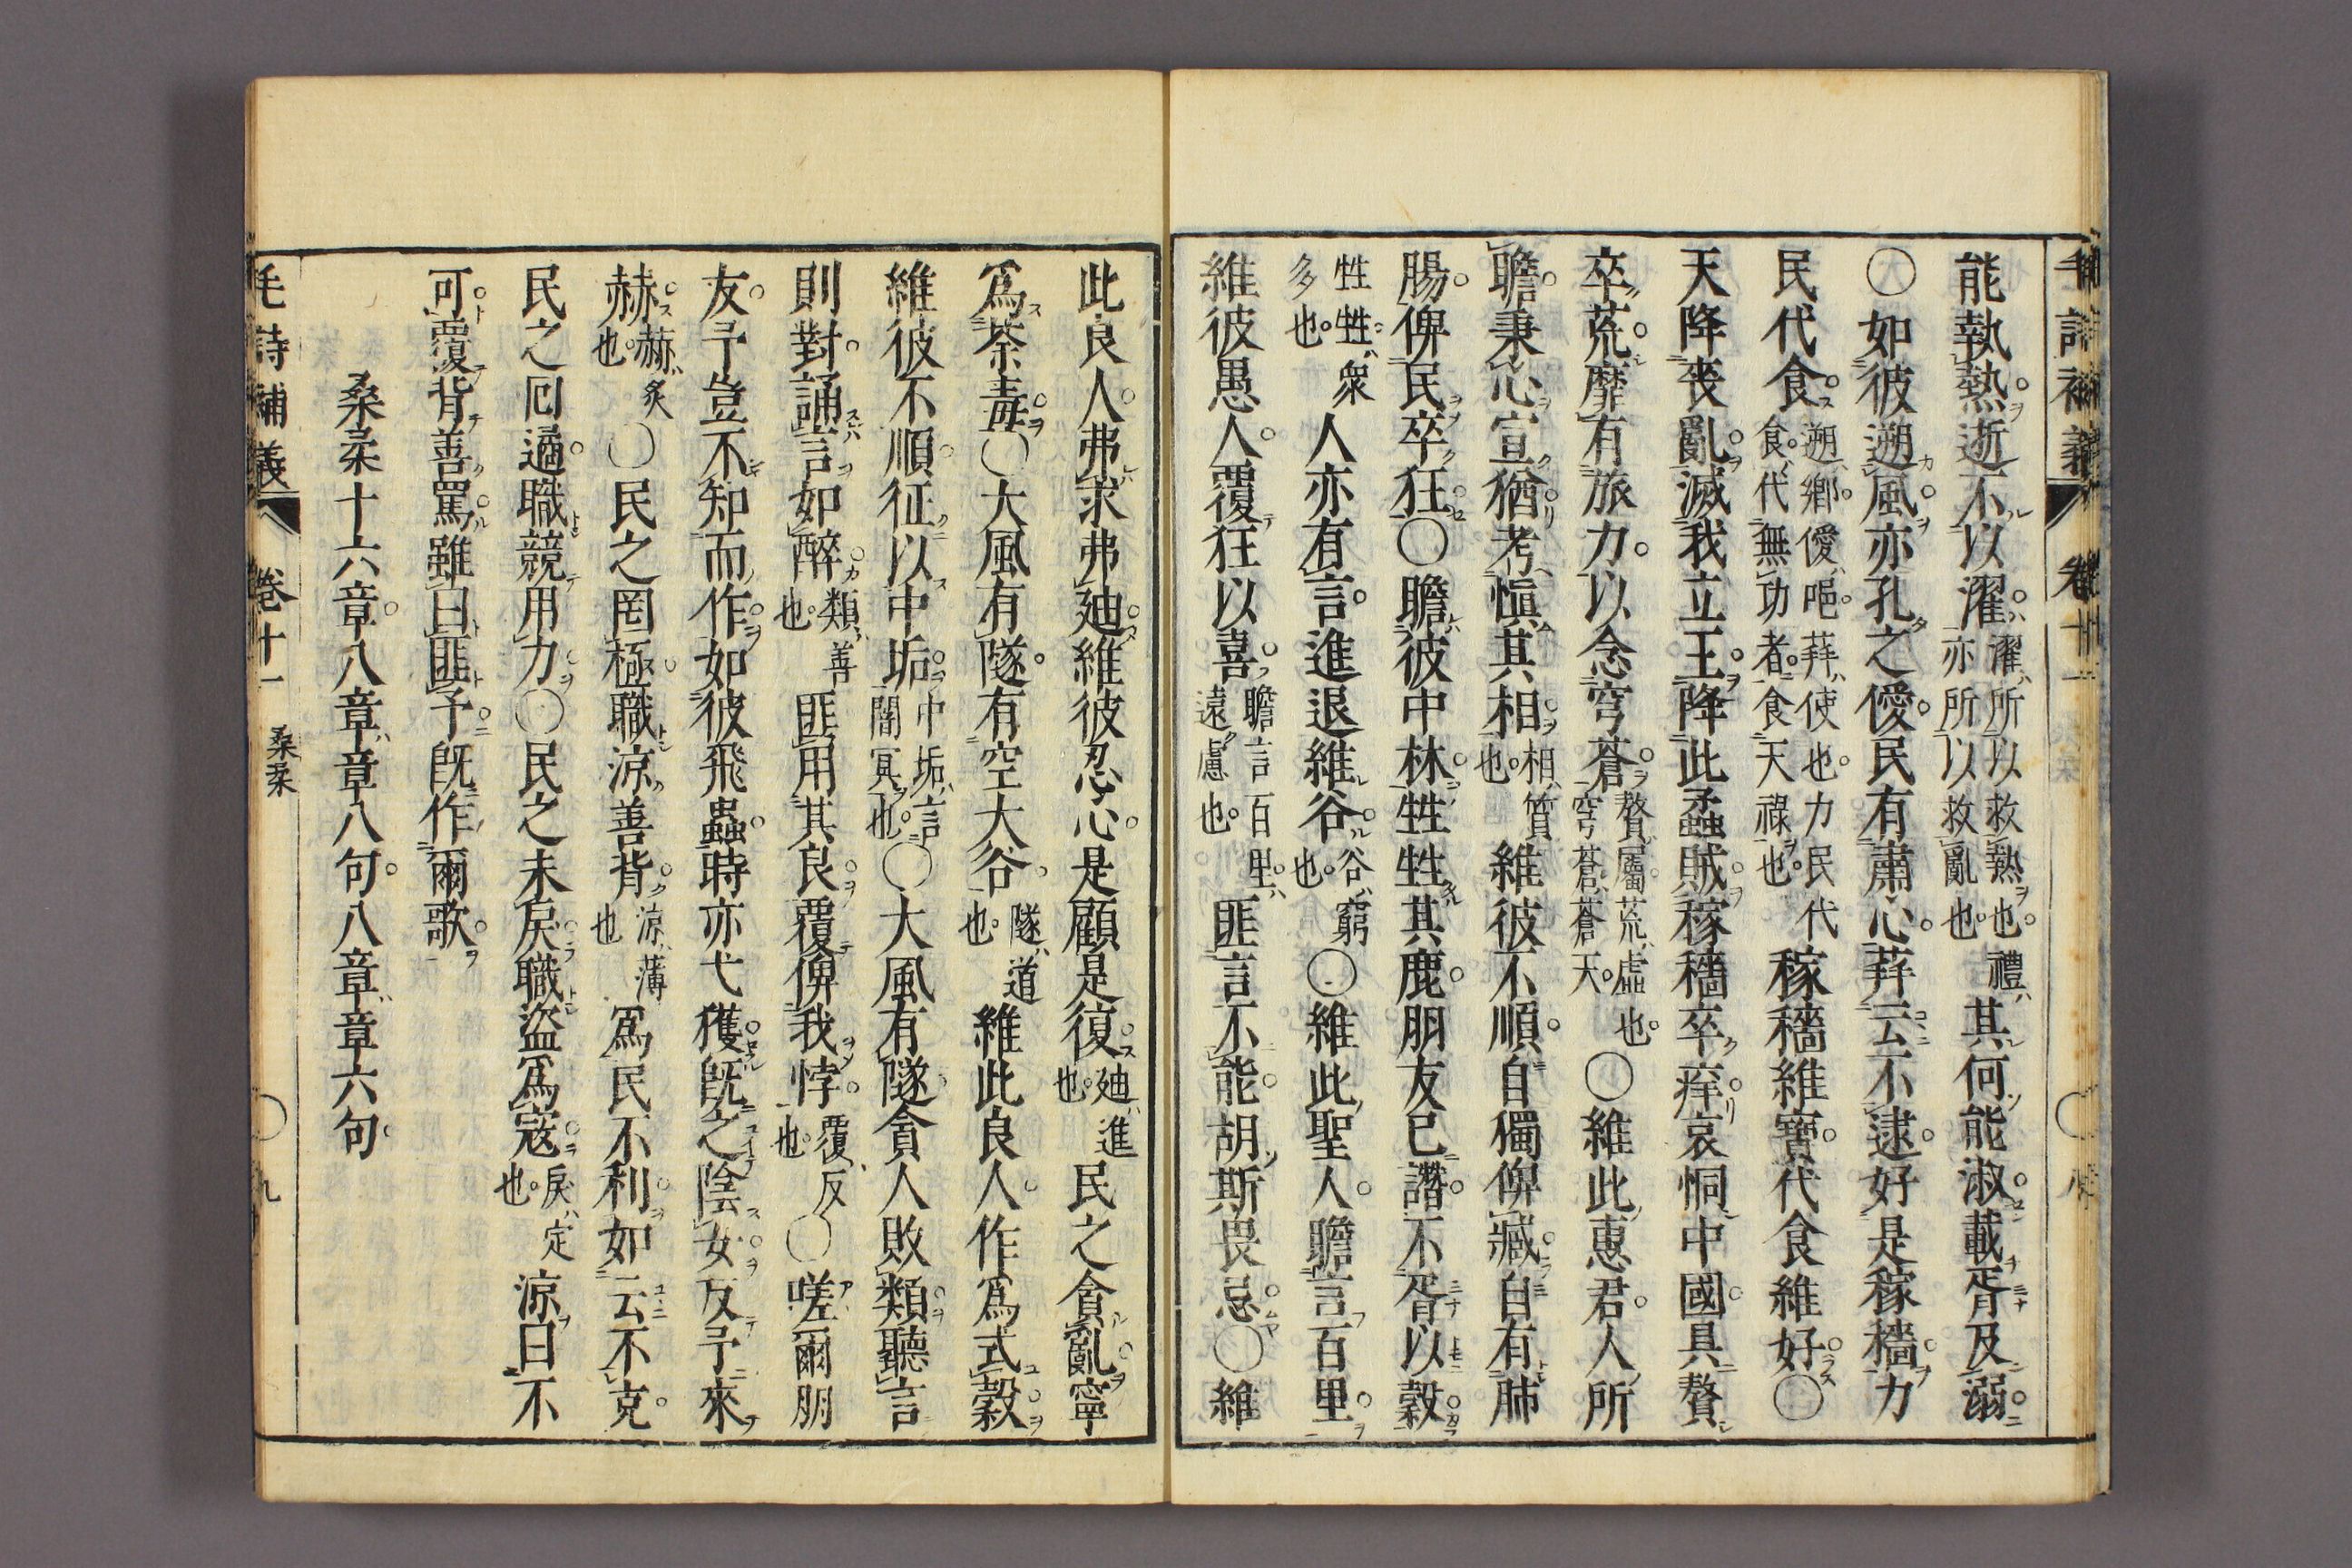 毛詩補義 卷十一
能執熱逝不以濯濯所以救熱也禮亦所以救亂也其何能淑載胥及溺
○如彼遡風亦孔之僾民有肅心荓云不逮好是稼穡力
民代食遡鄉僾唈荓使也力民代食代無功者食天祿也稼穡維寶代食維好○
天降喪亂滅我立王降此蟊賊稼穡卒痒哀恫中國具贅
卒荒靡有旅力以念穹蒼贅屬荒虛也穹蒼蒼天○維此惠君人所
瞻秉心宣猶考愼其相相質也維彼不順自獨俾臧自有肺
腸俾民卒狂○瞻彼中林甡甡其鹿朋友已譖不胥以穀
甡甡衆多也人亦有言進退維谷谷窮也○維此聖人瞻言百里
維彼愚人覆狂以喜瞻言百里遠慮也匪言不能胡斯畏忌○維
此良人弗求弗迪維彼忍心是顧是復迪進也民之貪亂寧
爲荼毒○大風有隧有空大谷隧道也維此良人作爲式穀
維彼不順征以中垢中垢言闇冥也○大風有隧貪人敗類聽言
則對誦言如醉類善也匪用其良覆俾我悖覆反也○嗟爾朋
友予豈不知而作如彼飛蟲時亦弋獲旣之陰女反予來
赫赫炙也○民之罔極職涼善背涼薄也爲民不利如云不克
民之回遹職競用力○民之未戾職盜爲寇戾定也涼曰不
可覆背善罵雖曰匪予旣作爾歌
桑柔十六章八章章八句八章章六句
毛詩補義 卷十一 桑柔 ○九